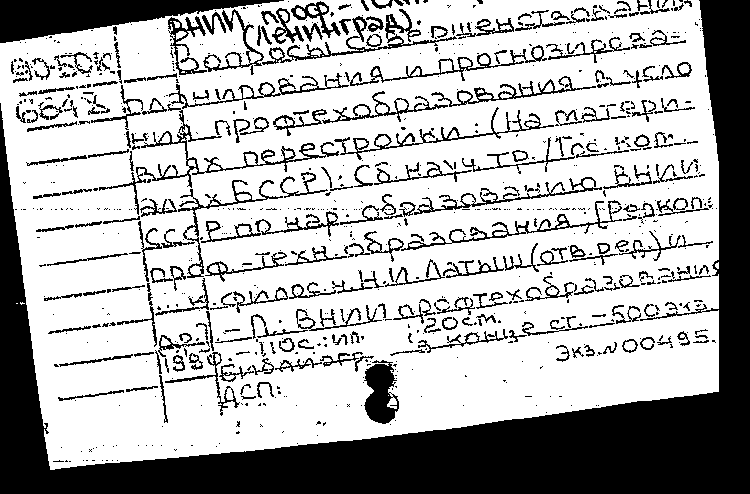 ВНИИ проф.-техн.
(Ленинград).
90-50К Вопросы совершенствования
664Х планирования и прогнозирова-
ния профтехобразования в усло
виях перестройки: (На матери-
алах БССР): Сб. науч. тр. / Гос. ком.
СССР по нар. образованию, ВНИИ
проф.-техн. образования, [Редкол.:
... к. филос. н. Н.И. Латыш (отв. ред.) и
др.]. - Л.: ВНИИ профтехобразования
1990. - 110с.: ил. ; 20см.
Библиогр. в конце ст. - 500 экз
Экз. N 00495.
ДСП.